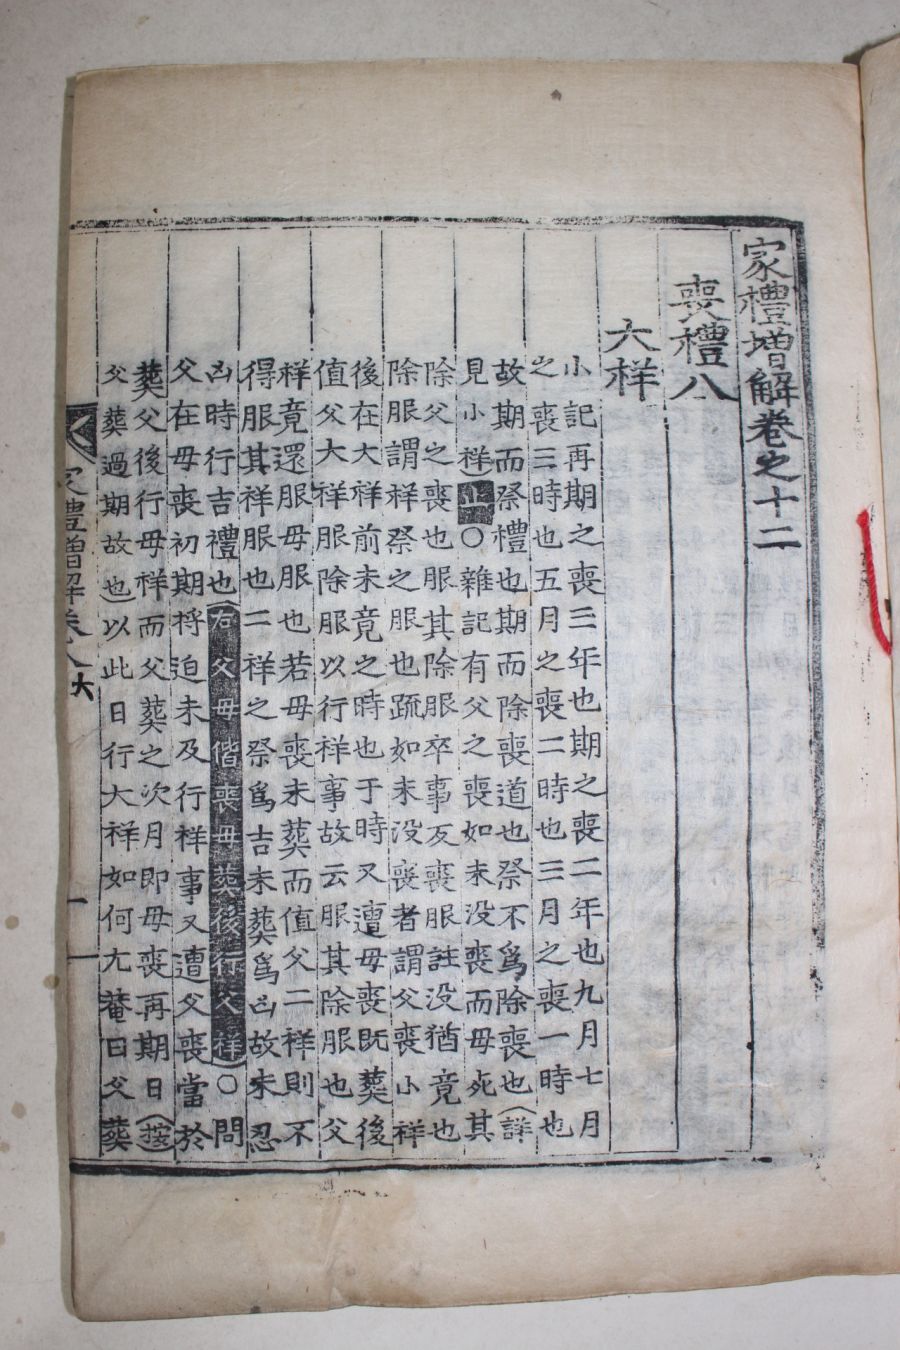 家禮增解卷之十二
喪禮八
大祥
小記再期之喪三年也期之喪二年也九月七月
之喪三時也五月之喪二時也三月之喪一時也
故期而祭禮也期而除喪道也祭不爲除喪也(詳
見小祥)止○雜記有父之喪如未没喪而母死其
除父之喪也服其除服卒事反喪服註没猶竟也
除服謂祥祭之服也䟽如未没喪者謂父喪小祥
後在大祥前未竟之時也于時又遭母喪既葬後
值父大祥除服以行祥事故云服其除服也父
祥竟還服母服也若母喪未葬而值父二祥則不
得服其祥服也二祥之祭爲吉未葬爲凶故未忍
凶時行吉禮也(右父母偕喪母葬後行父祥)○問
父在母喪初期將迫未及行祥事又遭父喪當於
葬父後行母祥而父葬之次月即母喪再期日(按
父葬過期故也)以此日行大祥如何尤菴曰父葬
家禮增解卷八 大
一